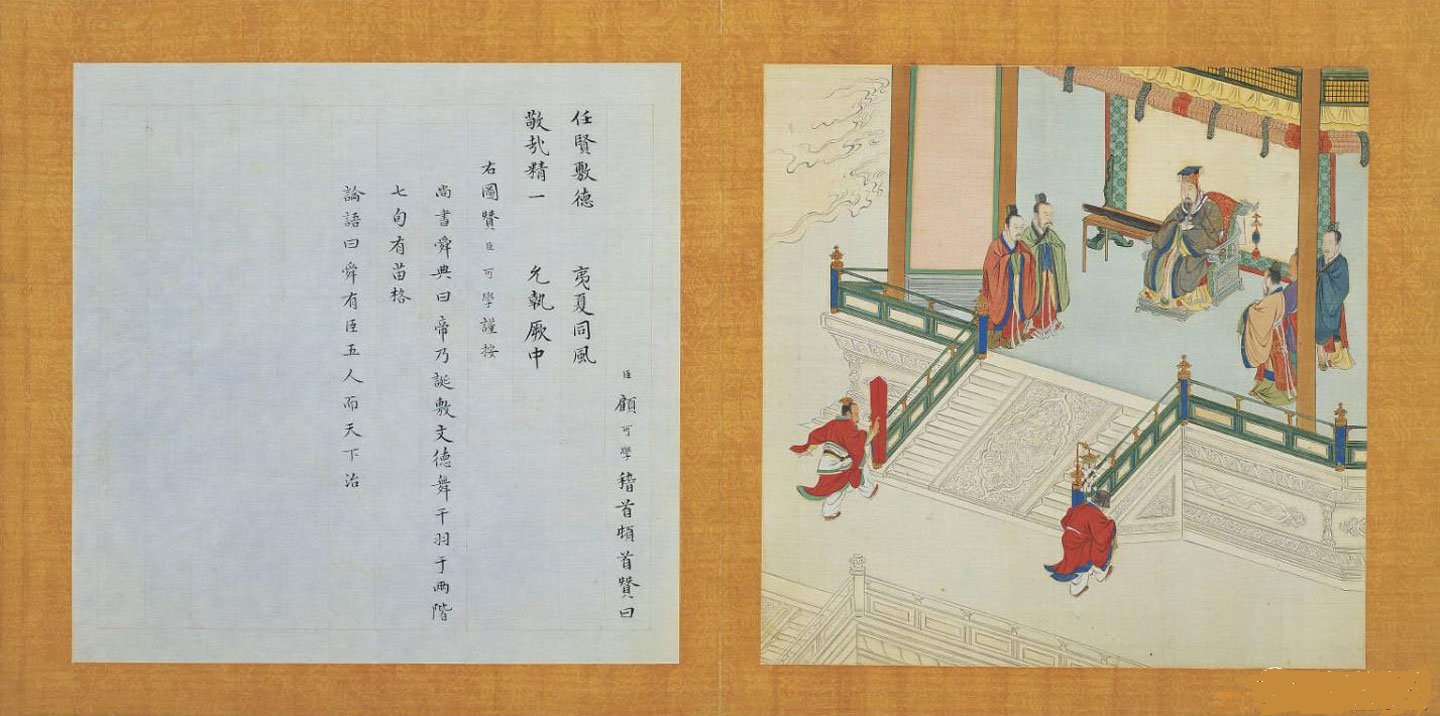 臣顧可學稽首頓首贊曰
任賢敷德 夷夏同風
敬㢤精一 允執厥中
右圖贊臣可學謹按
尚書舜典曰帝乃誕敷文德舞干羽于兩階
七旬有苗格
論語曰舜有臣五人而天下治